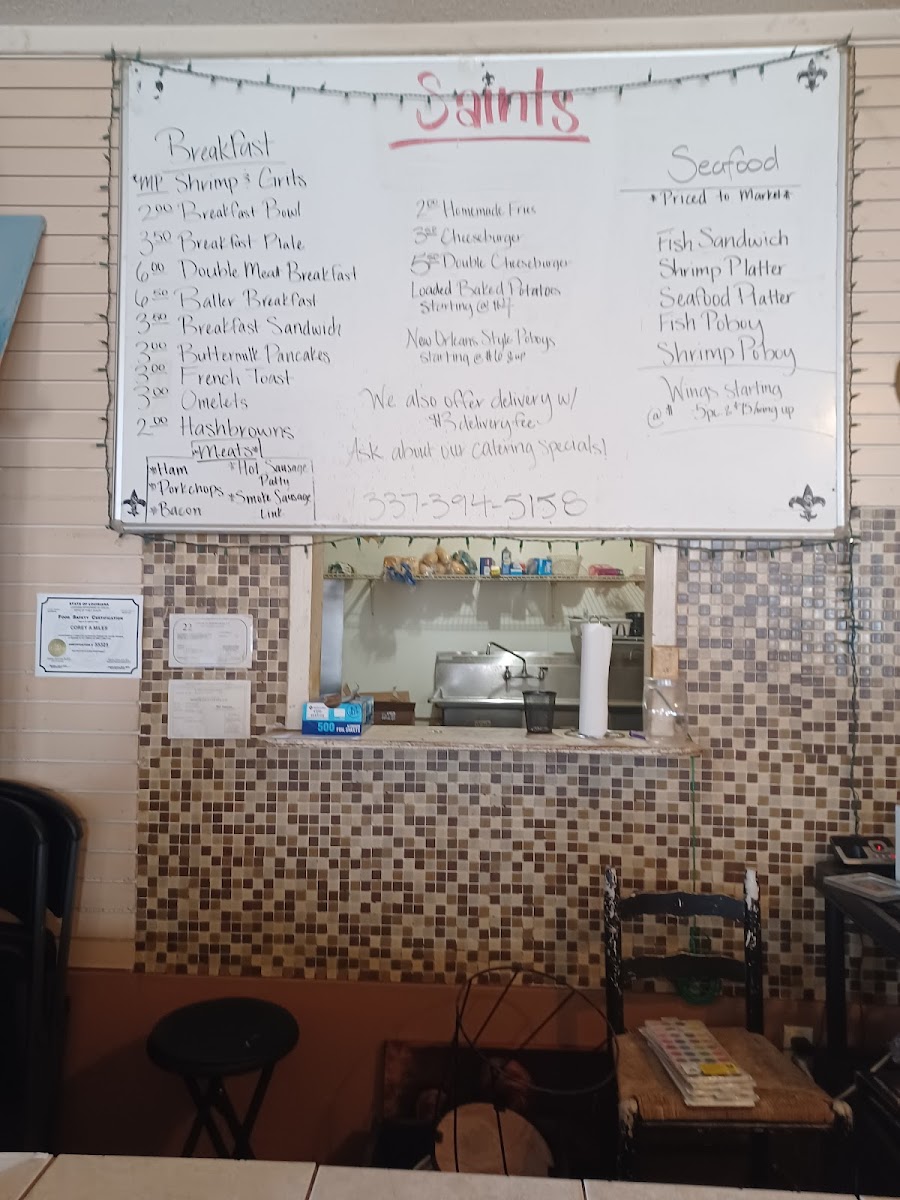 Saints
Breakfast
*MP Shrimp & Grits
2.00 Breakfast Bowl
3.50 Breakfast Plate
6.00 Double Meat Breakfast
6.50 Baller Breakfast
3.50 Breakfast Sandwich
3.00 Buttermilk Pancakes
3.00 French Toast
3.00 Omelets
2.00 Hashbrowns
*Meats*
*Ham
*Porkchops
*Bacon
*Hot Sausage
Patty
*Smoke Sausage
Link
2.00 Homemade Fries
Cheeseburger
Double Cheeseburger
Loaded Baked Potatoes
starting @
New Orleans Style Poboys
starting @ $6 & up
We also offer delivery w/
$3 delivery fee
Ask about our catering specials!
337-394-5158
Seafood
*Priced to Market*
Fish Sandwich
Shrimp Platter
Seafood Platter
Fish Poboy
Shrimp Poboy
Wings starting
@ $
STATE OF LOUISIANA
FOOD SAFETY CERTIFICATION
500